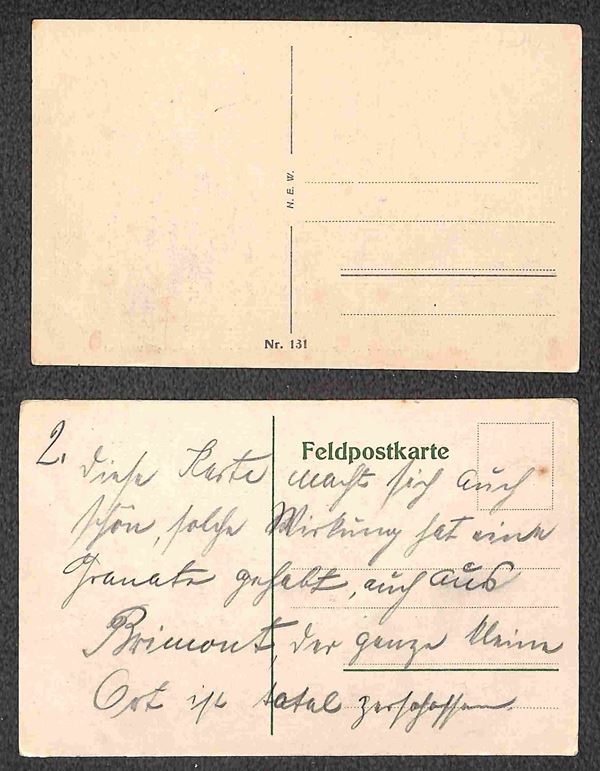 N. E. W.
Nr. 131
Feldpostkarte
2.
Diese Karte macht sich auch
schön, solche Wirkung hat eine
Granate gehabt, auch aus
Brimont, der ganze kleine
Ort ist total zerschossen.